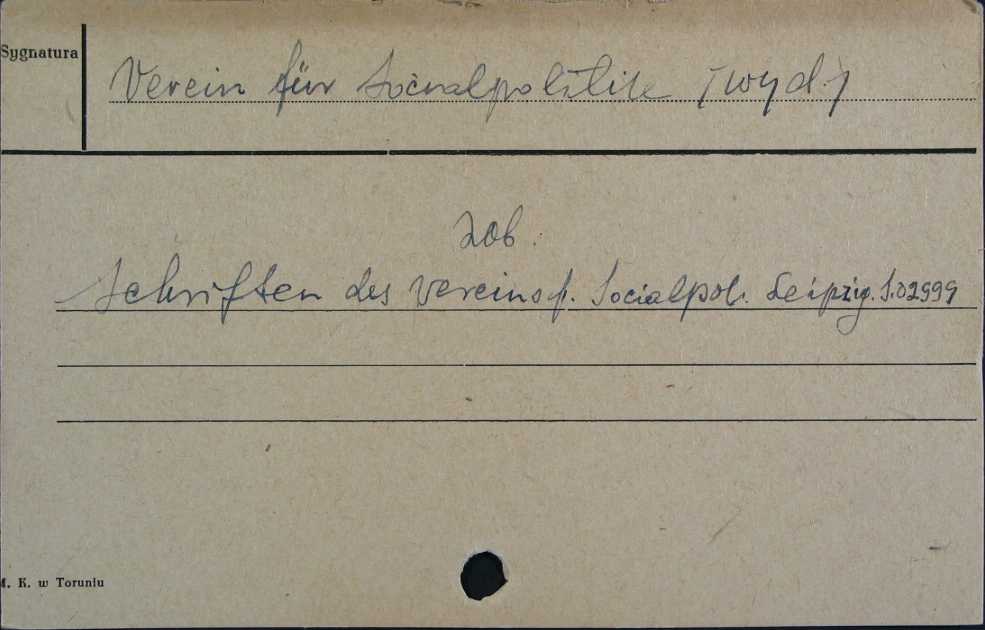 Sygnatura
Verein für Socialpolitik [wyd.]
zob.
Schriften des Vereins f. Socialpol. Leipzig. S.02999
M. K. w Toruniu